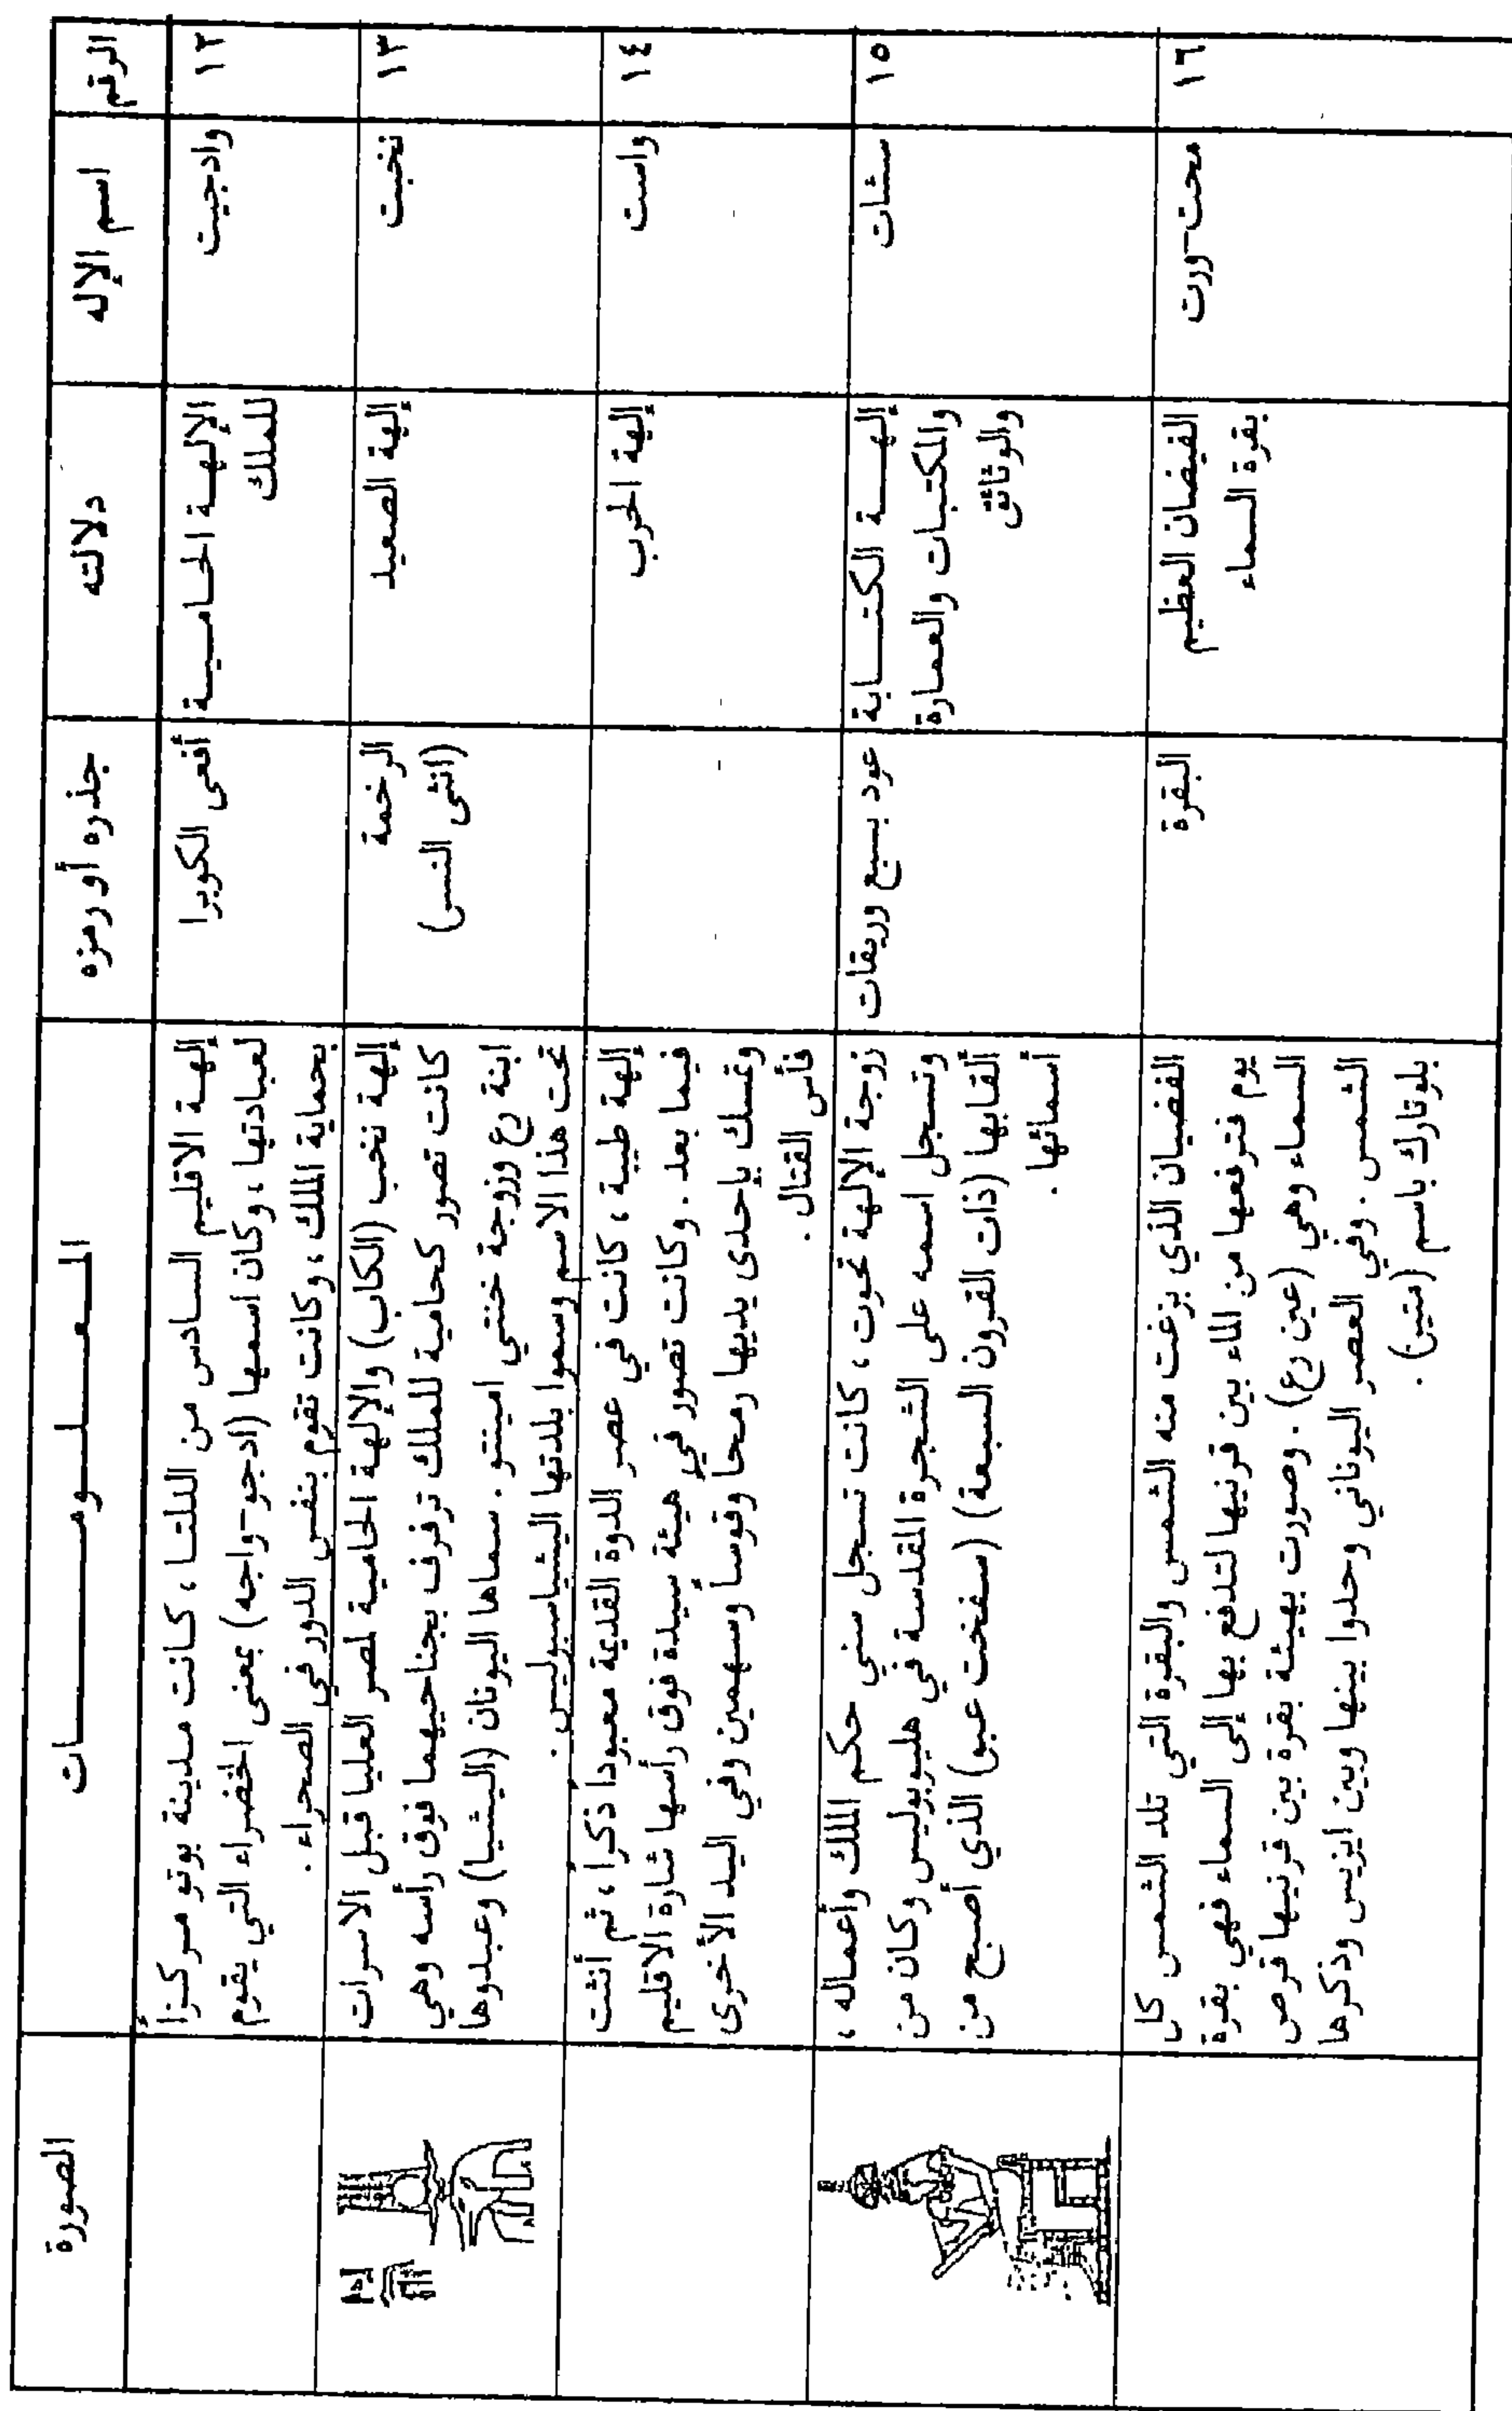 الرقم
اسم الإله
دلالته
جذره أو رمزه
المعلومات
الصورة
١٢
وادجيت
الإلهة الحامية
للملك
أفعى الكوبرا
إلهة الاقليم السادس من الدلتا، كانت مدينة بوتو مركزاً
لعبادتها، وكان اسمها (ادجو-واجه) بمعنى الخضراء التي يقوم
بحماية الملك، وكانت تقوم بنفس الدور في الصحراء.
١٣
نخبت
إلهة الصعيد
الرخمة
(انثى النسر)
إلهة نخب (الكاب) والإلهة الحامية لمصر العليا قبل الاسرات
كانت تصور كحامية للملك ترفرف بجناحيهما فوق رأسه وهي
ابنة رع وزوجة خنتي امينتو. سماها اليونان (اليثيا) وعبدوها
تحت هذا الاسم وسموا بلدتها اليثياسبوليس.
١٤
واست
إلهة الحرب
إلهة طيبة، كانت في عصر الدوة القديمة معبودا ذكرا، ثم أنثت
فيما بعد. وكانت تصور في هيئة سيدة فوق رأسها شارة الاقليم
وتمسك بإحدى يديها رمحا وقوسا وسهمين وفي اليد الأخرى
فأس القتال.
١٥
سشات
إلهة الكتابة
والمكتبات والعمارة
والوثائق
عود بسبع وريقات
زوجة الإلهة تحوت، كانت تسجل سني حكم الملك وأعماله،
وتسجل اسمه على الشجرة المقدسة في هليوبوليس وكان من
ألقابها (ذات القرون السبعة) (سفخت عبو) الذي أصبح من
أسمائها.
١٦
محت-ورت
الفيضان العظيم
بقرة السماء
البقرة
الفضيان الذي بزغت منه الشمس والبقرة التي تلد الشمس كل
يوم فترفعها من الماء بين قرنيها لتدفع بها إلى السماء فهي بقرة
السماء وهي (عين رع). وصورت بهيئة بقرة بين قرنيها قرص
الشمس. وفي العصر اليوناني وحدوا بينها وبين ايزيس وذكرها
بلوتارك باسم (متير).